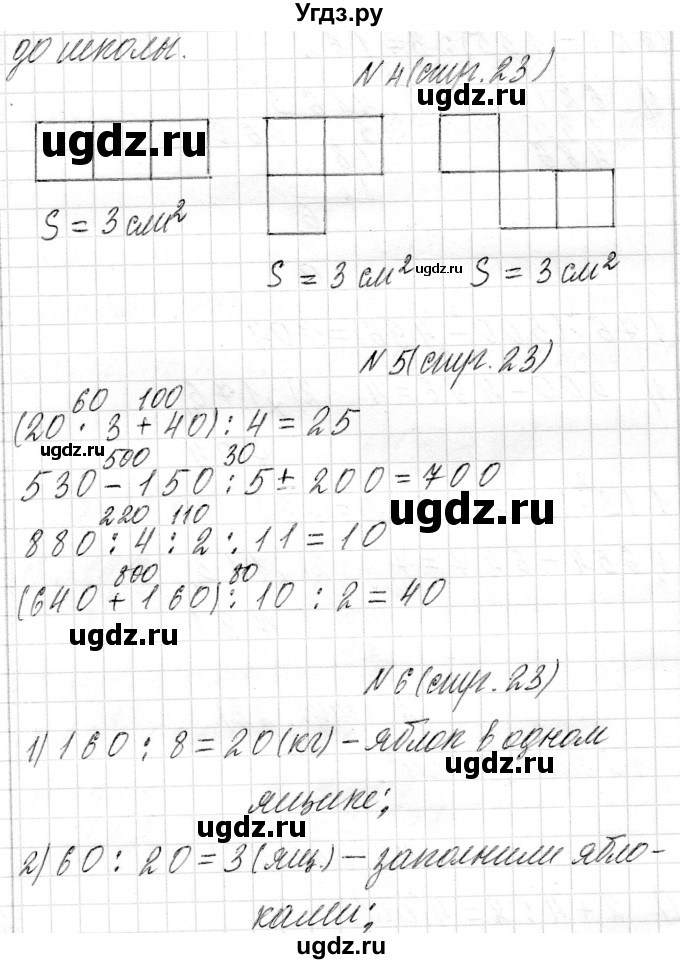 Угдз.ру
до школы.
N 4 (стр. 23)
ugdz.ru
S = 3 см²
S = 3 см² ugdz.ru S = 3 см²
N 5 (стр. 23)
60 100
(20 · 3 + 40) : 4 = 25
ugdz.ru 500 30
530 - 150 : 5 + 200 = 700
ugdz.ru
220 110
880 : 4 : 2 : 11 = 10
800 80
(640 + 160) : 10 : 2 = 40
ugdz.ru
N 6 (стр. 23)
1) 160 : 8 = 20 (кг) – яблок в одном
ugdz.ru
ящике;
ugdz.ru
2) 60 : 20 = 3 (ящ.) – заполнили ябло-
ками;
ugdz.ru